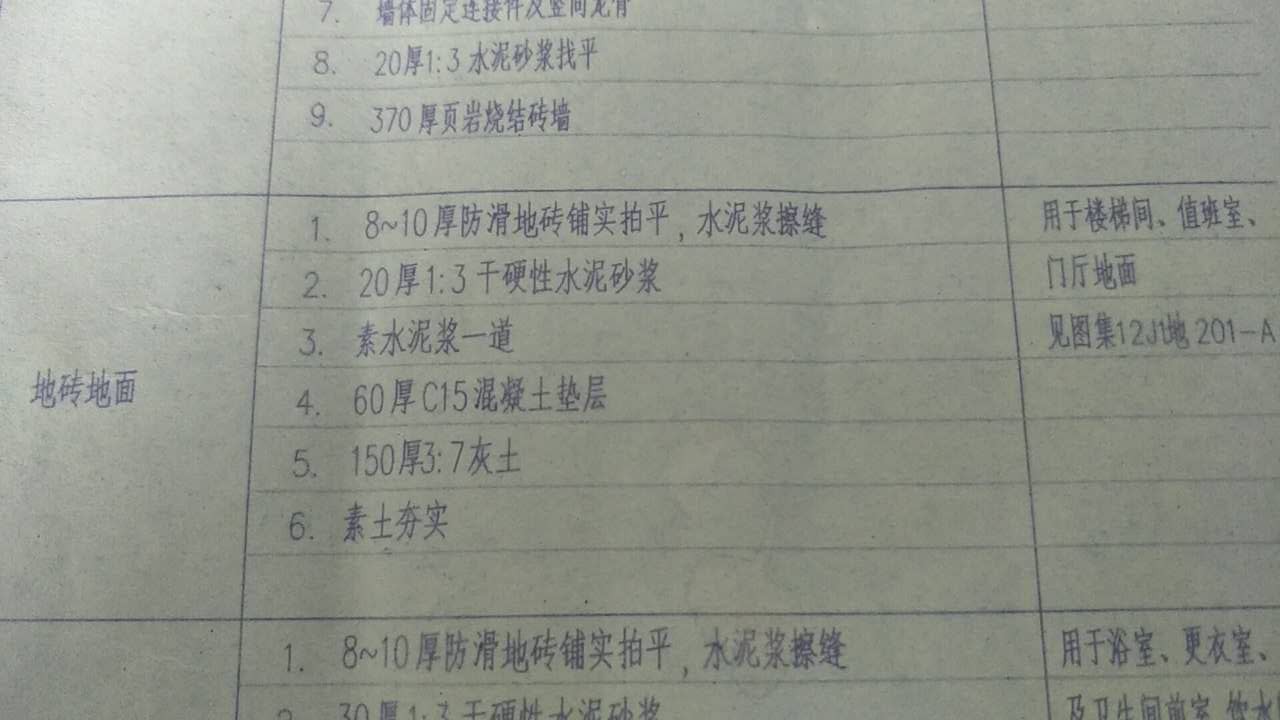 7. 墙体固定连接件及竖向龙骨
8. 20厚1:3水泥砂浆找平
9. 370厚页岩烧结砖墙
地砖地面
1. 8~10厚防滑地砖铺实拍平，水泥浆擦缝
用于楼梯间、值班室、
2. 20厚1:3干硬性水泥砂浆
门厅地面
3. 素水泥浆一道
见图集12J1地201-A
4. 60厚C15混凝土垫层
5. 150厚3:7灰土
6. 素土夯实
1. 8~10厚防滑地砖铺实拍平，水泥浆擦缝
用于浴室、更衣室、
2. 30厚1:3干硬性水泥砂浆
及卫生间前室、饮水